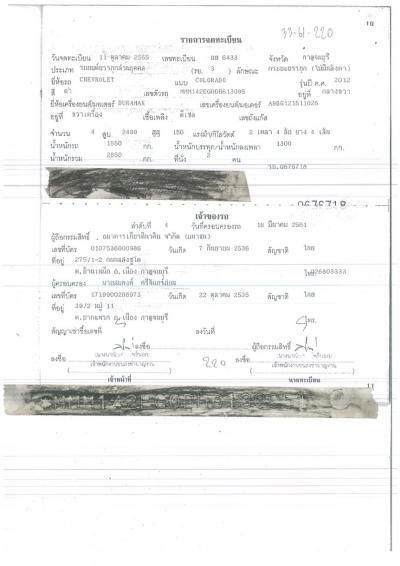 33-61-220
10
รายการจดทะเบียน
วันจดทะเบียน 11 ตุลาคม 2565 เลขทะเบียน 6433 จังหวัด กาญจนบุรี
ประเภท รถยนต์บรรทุกส่วนบุคคล (รย. 3 ) ลักษณะ กระบะบรรทุก (ไม่มีหลังคา)
ยี่ห้อรถ CHEVROLET แบบ COLORADO รุ่นปี ค.ศ. 2012
สี ดำ เลขตัวรถ อยู่ที่ กลางขวา
ยี่ห้อเครื่องยนต์/มอเตอร์ DURAMAX เลขเครื่องยนต์/มอเตอร์
อยู่ที่ ขวาเครื่อง เชื้อเพลิง ดีเซล เลขถังแก๊ส
จำนวน 4 สูบ 2499 ซีซี 150 แรงม้า/กิโลวัตต์ 2 เพลา 4 ล้อ ยาง 4 เส้น
น้ำหนักรถ 1550 กก. น้ำหนักบรรทุก/น้ำหนักลงเพลา 1300 กก.
น้ำหนักรวม 2850 กก. ที่นั่ง 2 คน
รย.0676718
0676718
เจ้าของรถ
ลำดับที่ 4 วันที่ครอบครองรถ 16 มีนาคม 2561
ผู้ถือกรรมสิทธิ์ ธนาคารเกียรตินาคิน จำกัด (มหาชน)
เลขที่บัตร 0107536000986 วันเกิด 7 กันยายน 2536 สัญชาติ ไทย
ที่อยู่ 275/1-2 ถนนแสงชูโต
ต.บ้านเหนือ อ.เมือง กาญจนบุรี โทร.
ผู้ครอบครอง
เลขที่บัตร 1719900286973 วันเกิด 22 ตุลาคม 2535 สัญชาติ ไทย
ที่อยู่ 39/2 หมู่ 11
ต.ปากแพรก อ.เมือง กาญจนบุรี โทร.
สัญญาเช่าซื้อเลขที่ ลงวันที่
ผู้ถือกรรมสิทธิ์
ลงชื่อ 220 ลงชื่อ
เจ้าพนักงานขนส่งชำนาญงาน เจ้าพนักงานขนส่งชำนาญงาน
เจ้าหน้าที่ นายทะเบียน
11